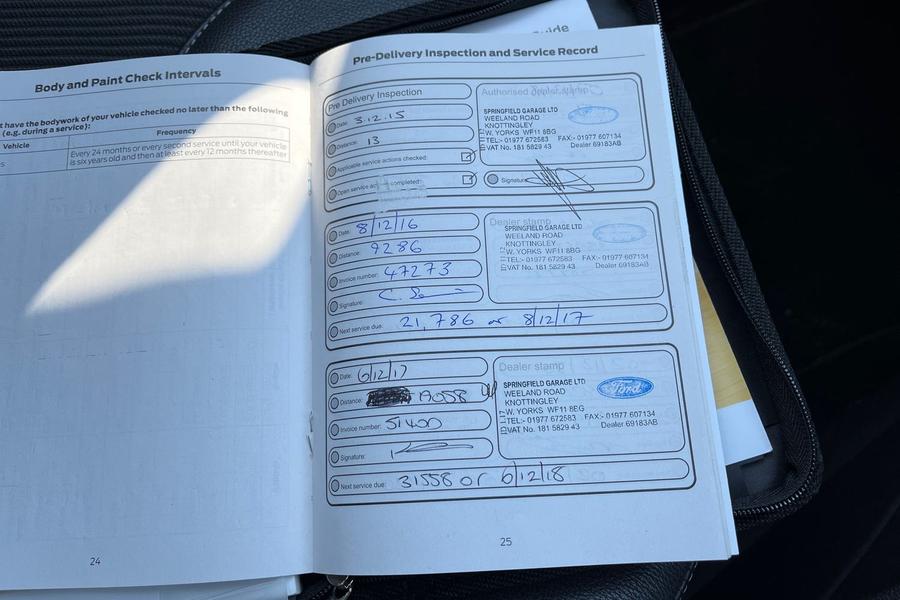 Body and Paint Check Intervals
t have the bodywork of your vehicle checked no later than the following
(e.g. during a service):
Vehicle
Frequency
Every 24 months or every second service until your vehicle
is six years old and then at least every 12 months thereafter
24
Pre-Delivery Inspection and Service Record
Pre Delivery Inspection
Date: 3.12.15
Distance: 13
Applicable service actions checked:
Open service completed:
Authorised
SPRINGFIELD GARAGE LTD
WEELAND ROAD
KNOTTINGLEY
W. YORKS WF11 8BG
TEL:- 01977 672583 FAX:- 01977 607134
VAT No. 181 5829 43 Dealer 69183AB
Signature
Date: 8/12/16
Distance: 9286
Invoice number: 47273
Signature:
Next service due: 21,786 or 8/12/17
Dealer stamp
SPRINGFIELD GARAGE LTD
WEELAND ROAD
KNOTTINGLEY
W. YORKS WF11 8BG
TEL:- 01977 672583 FAX:- 01977 607134
VAT No. 181 5829 43 Dealer 69183AB
Date: 6/12/17
Distance: 19058
Invoice number: 51400
Signature:
Next service due: 31558 or 6/12/18
Dealer stamp
SPRINGFIELD GARAGE LTD
WEELAND ROAD
KNOTTINGLEY
W. YORKS WF11 8EG
TEL:- 01977 672583 FAX:- 01977 607134
VAT No. 181 5829 43 Dealer 69183AB
Ford
25